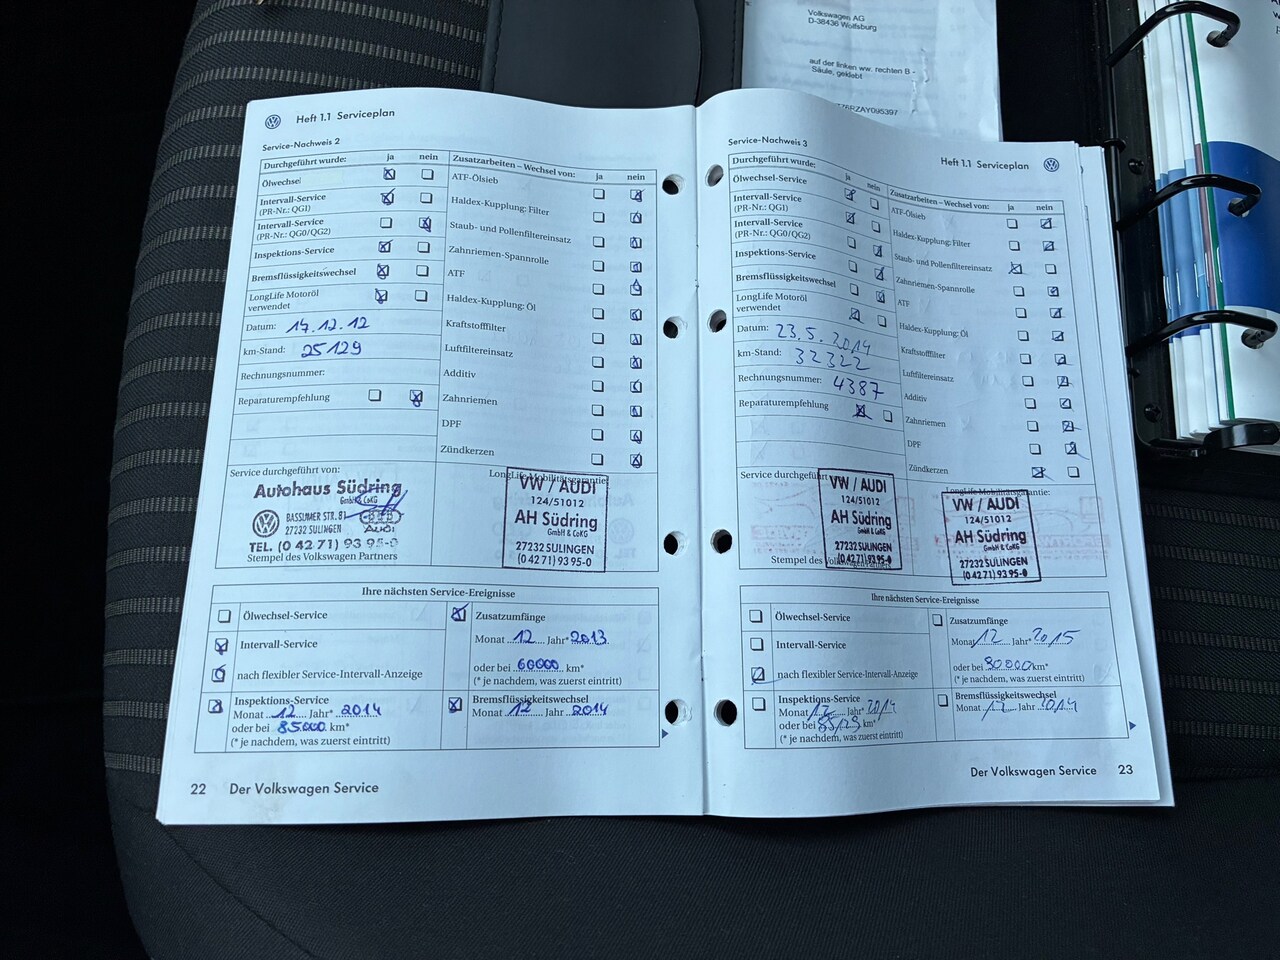 Volkswagen AG
D-38436 Wolfsburg
auf der linken ww. rechten B -
Säule, geklebt
Heft 1.1 Serviceplan
Service-Nachweis 2
Durchgeführt wurde: ja nein
Ölwechsel
Intervall-Service
(PR-Nr.: QG1)
Intervall-Service
(PR-Nr.: QG0/QG2)
Inspektions-Service
Bremsflüssigkeitswechsel
LongLife Motoröl
verwendet
Datum: 14.12.12
km-Stand: 25129
Rechnungsnummer:
Reparaturempfehlung
Zusatzarbeiten – Wechsel von: ja nein
ATF-Ölsieb
Haldex-Kupplung: Filter
Staub- und Pollenfiltereinsatz
Zahnriemen-Spannrolle
ATF
Haldex-Kupplung: Öl
Kraftstofffilter
Luftfiltereinsatz
Additiv
Zahnriemen
DPF
Zündkerzen
Service durchgeführt von:
Autohaus Südring
GmbH & CoKG
BASSUMER STR. 81
27232 SULINGEN
Audi
TEL. (0 42 71) 93 95-0
Stempel des Volkswagen Partners
LongLife Mobilitätsgarantie:
VW / AUDI
124/51012
AH Südring
GmbH & CoKG
27232 SULINGEN
(0 42 71) 93 95-0
Ihre nächsten Service-Ereignisse
Ölwechsel-Service
Intervall-Service
nach flexibler Service-Intervall-Anzeige
Inspektions-Service
Monat 12 Jahr* 2014
oder bei 85000 km*
(* je nachdem, was zuerst eintritt)
Zusatzumfänge
Monat 12 Jahr* 2013
oder bei 60000 km*
(* je nachdem, was zuerst eintritt)
Bremsflüssigkeitswechsel
Monat 12 Jahr 2014
22 Der Volkswagen Service
Heft 1.1 Serviceplan
Service-Nachweis 3
Durchgeführt wurde: ja nein
Ölwechsel-Service
Intervall-Service
(PR-Nr.: QG1)
Intervall-Service
(PR-Nr.: QG0/QG2)
Inspektions-Service
Bremsflüssigkeitswechsel
LongLife Motoröl
verwendet
Datum: 23.5.2014
km-Stand: 32322
Rechnungsnummer: 4387
Reparaturempfehlung
Zusatzarbeiten – Wechsel von: ja nein
ATF-Ölsieb
Haldex-Kupplung: Filter
Staub- und Pollenfiltereinsatz
Zahnriemen-Spannrolle
ATF
Haldex-Kupplung: Öl
Kraftstofffilter
Luftfiltereinsatz
Additiv
Zahnriemen
DPF
Zündkerzen
Service durchgeführt
VW / AUDI
124/51012
AH Südring
GmbH & CoKG
27232 SULINGEN
(0 42 71) 93 95-0
Stempel des Volkswagen
LongLife Mobilitätsgarantie:
VW / AUDI
124/51012
AH Südring
GmbH & CoKG
27232 SULINGEN
(0 42 71) 93 95-0
Ihre nächsten Service-Ereignisse
Ölwechsel-Service
Intervall-Service
nach flexibler Service-Intervall-Anzeige
Inspektions-Service
Monat 12 Jahr* 2014
oder bei km*
(* je nachdem, was zuerst eintritt)
Zusatzumfänge
Monat 12 Jahr* 2015
oder bei 90000 km*
(* je nachdem, was zuerst eintritt)
Bremsflüssigkeitswechsel
Monat 12 Jahr 2014
Der Volkswagen Service 23